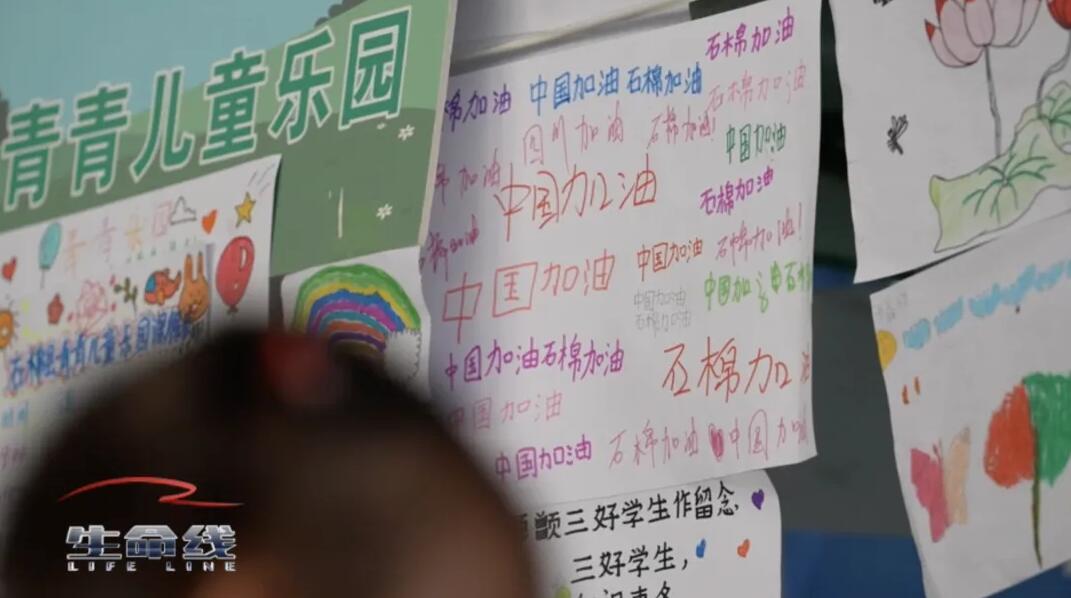 青青儿童乐园
青青乐园
石棉县青青儿童乐园
石棉加油
棉加油 中国加油 石棉加油
石棉加油
四川加油 石棉加油!
中国加油
加油
中国加油
石棉加油
加油
中国加油
石棉加油!
中国加油
中国加油
石棉加油
中国加油石棉加油
石棉加
中国加油
中国加油
石棉加油 中国加油
三好学生作留念
三好学生,
生命线
LIFE LINE